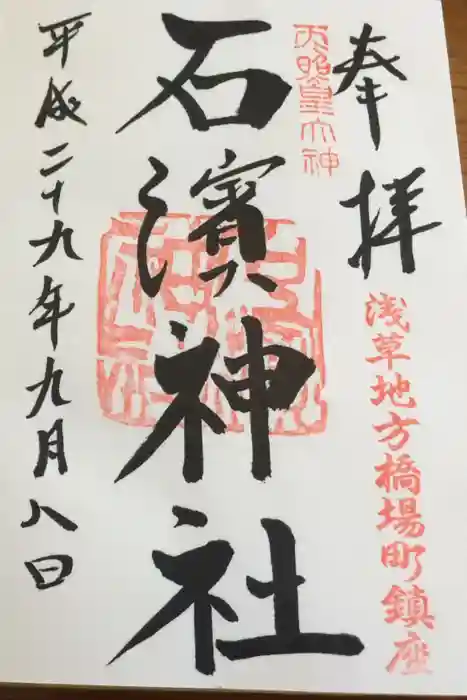 奉拝
浅草地方橋場町鎮座
天照皇大神
石濱神社
平成二十九年九月八日